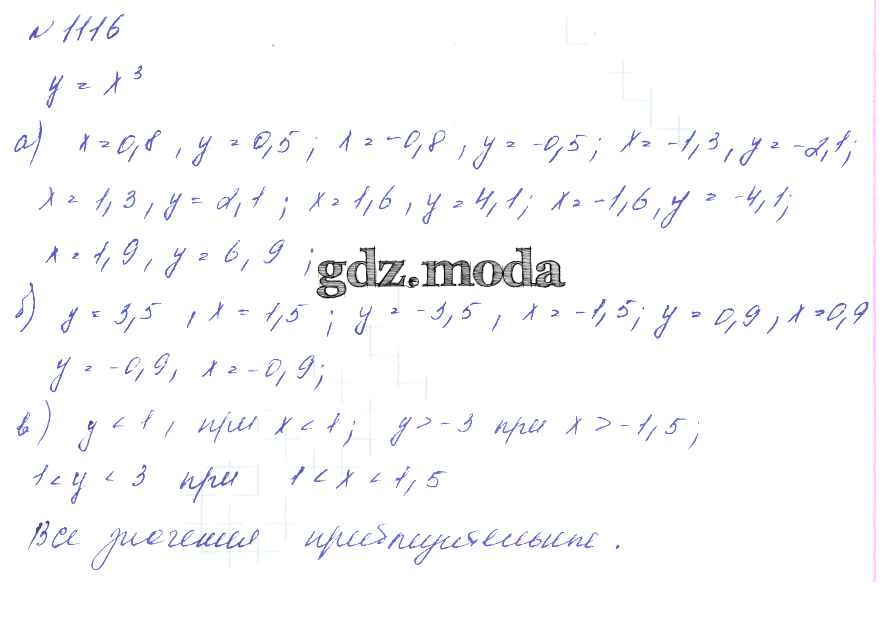 № 1116
y = x³
а) x=0,8 , y = 0,5 ; x = -0,8 , y = -0,5 ; x = -1,3 , y = -2,1 ;
x = 1,3 , y = 2,1 ; x = 1,6 , y = 4,1 ; x = -1,6 , y = -4,1 ;
x = 1,9 , y = 6,9 ;
gdz.moda
б) y = 3,5 , x = 1,5 ; y = -3,5 , x = -1,5 ; y = 0,9 , x = 0,9
y = -0,9 , x = -0,9 ;
в) y < 1 , при x < 1 ; y > -3 при x > -1,5 ;
1 < y < 3 при 1 < x < 1,5
Все значения приблизительные .